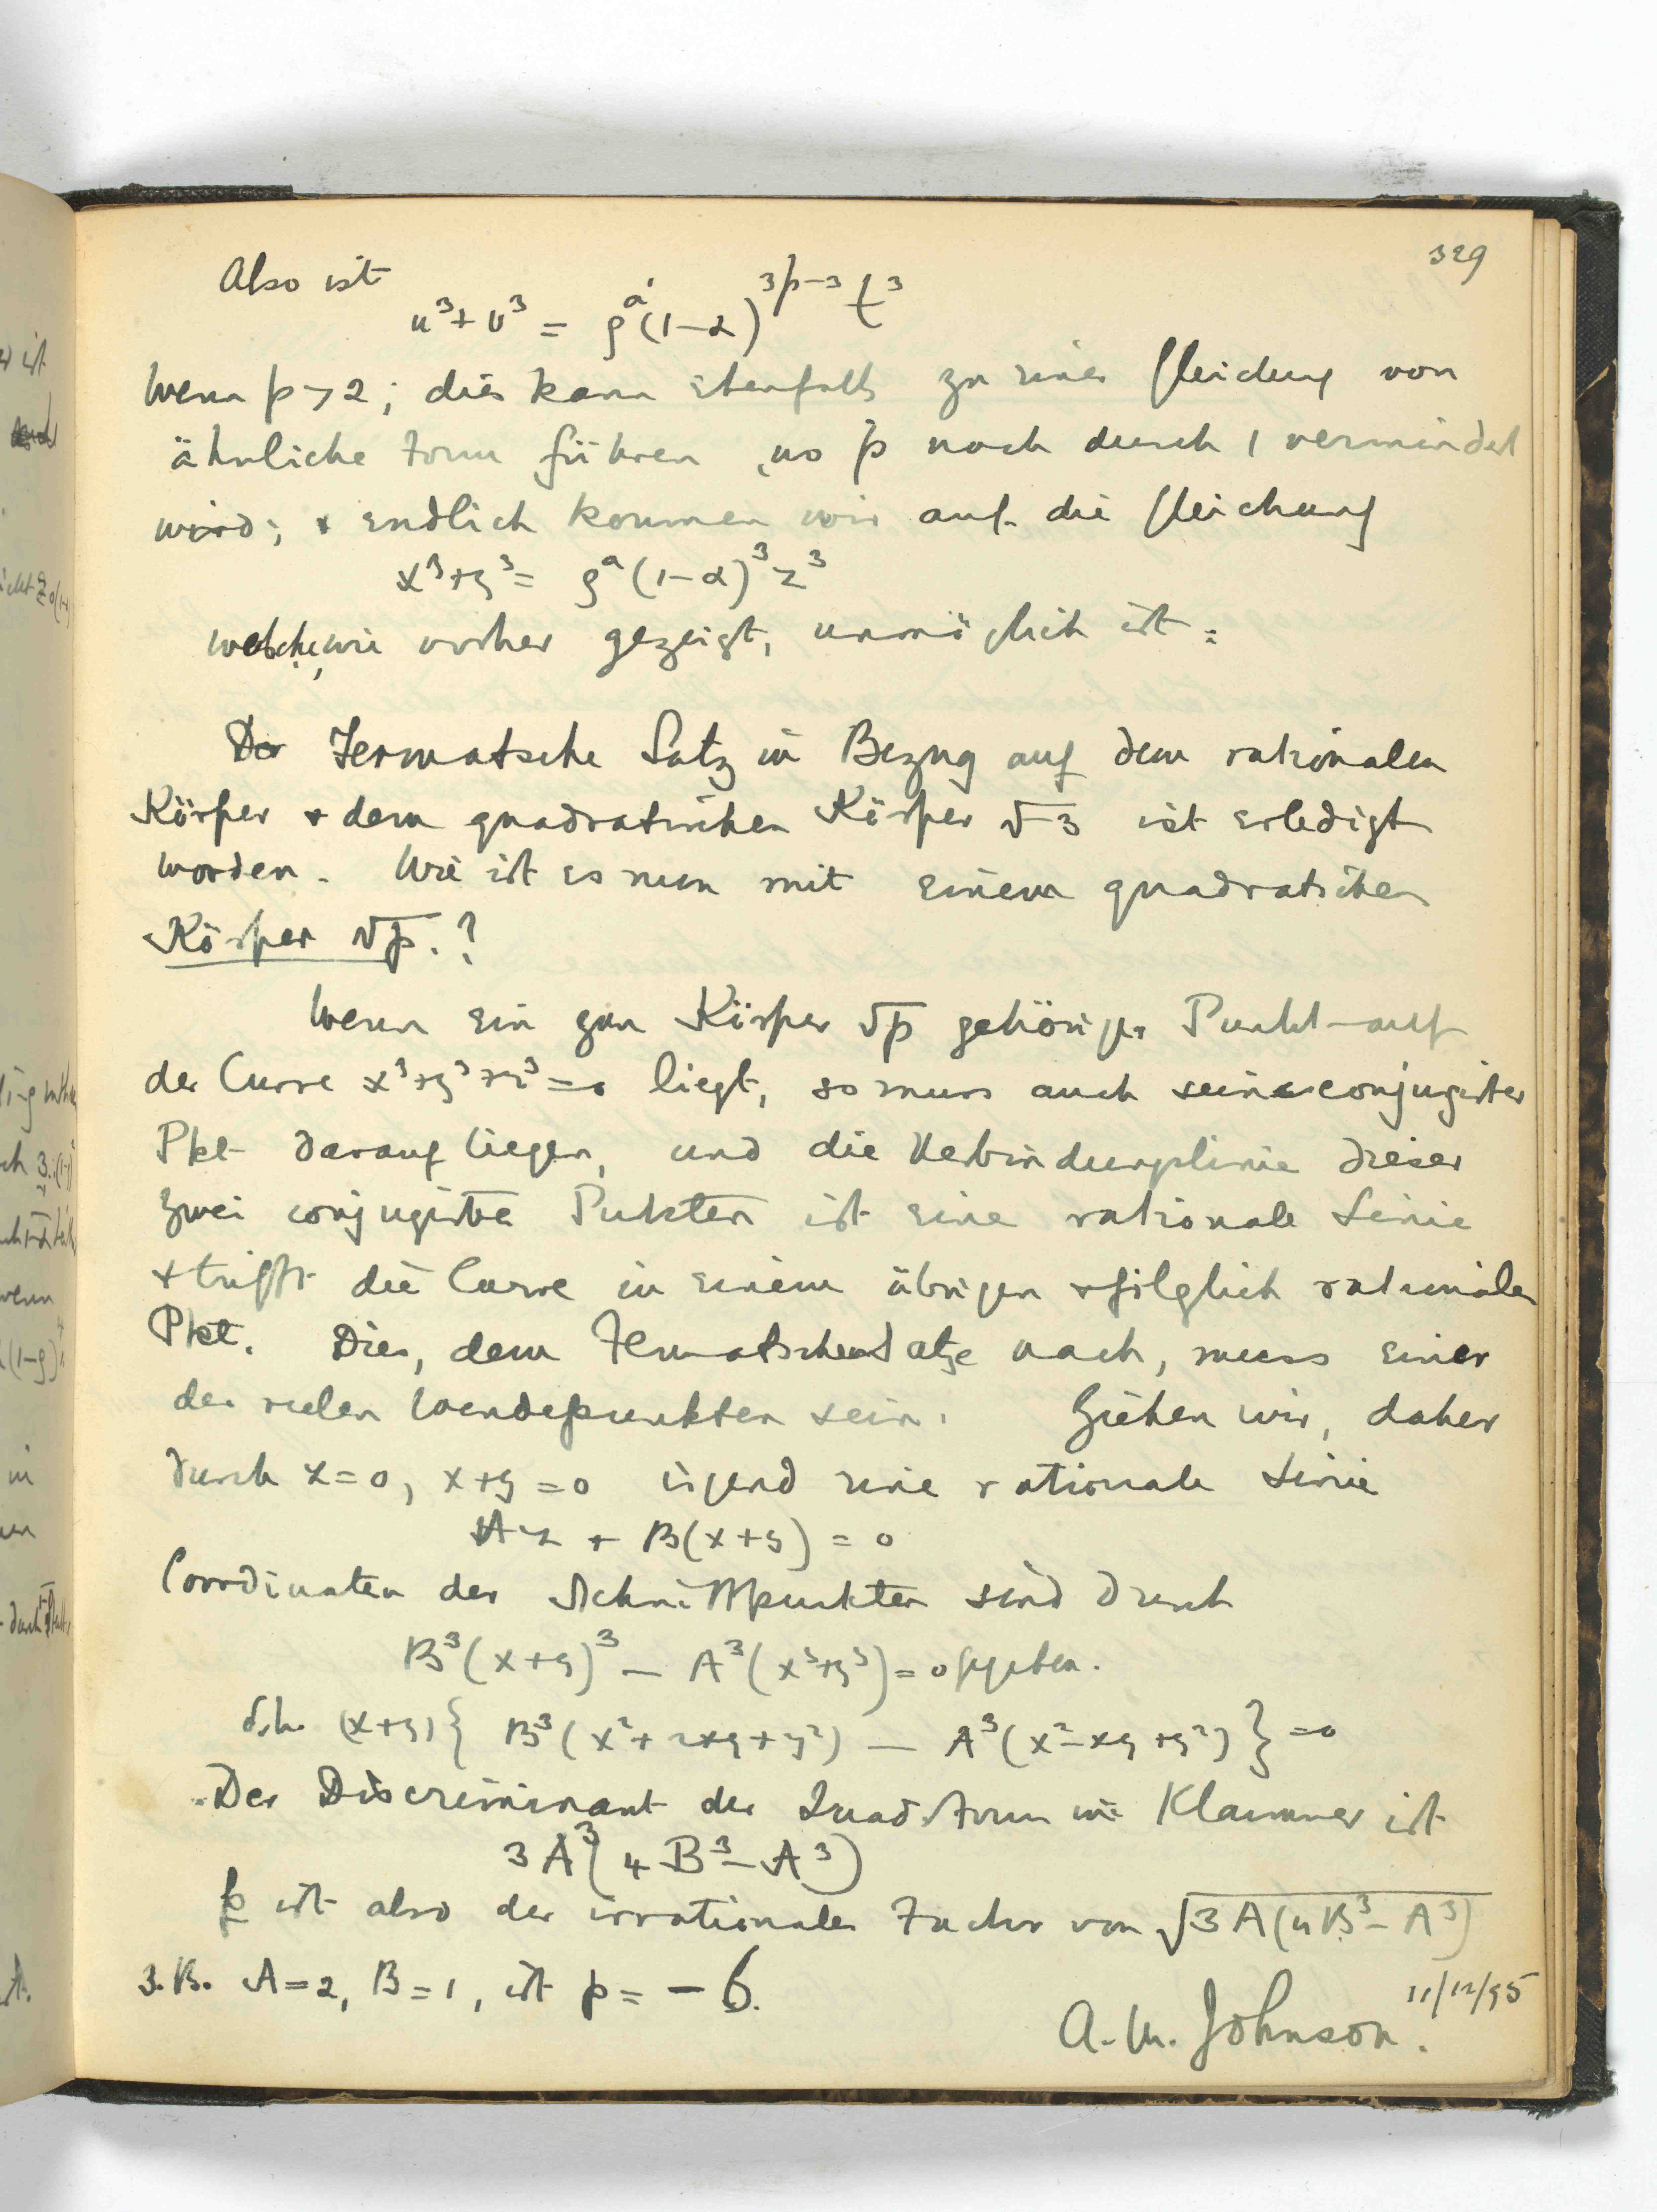 329
Also ist
u³+v³ = ρᵃ'(1-α)³ᵖ⁻³ t³
Wenn p>2; dies kann ebenfalls zu einer Gleichung von
ähnliche Form führen, wo p noch durch 1 vermindert
wird; & endlich kommen wir auf die Gleichung
x³+y³ = ρᵃ(1-α)³z³
welche, wie vorher gezeigt, unmöglich ist:
Der Fermatsche Satz in Bezug auf dem rationalen
Körper & dem quadratischen Körper √-3 ist erledigt
worden. Wie ist es nun mit einem quadratischen
Körper √p.?
Wenn ein zum Körper √p gehöriger Punkt auf
der Curve x³+y³+z³=0 liegt, so muss auch sein conjugirter
Pkt darauf liegen, und die Verbindungslinie dieser
zwei conjugirte Pukten ist eine rationale Linie
& trifft die Curve in einem übrigen & folglich rationalen
Pkt. Dies, dem Fermatschen Satze nach, muss einer
der reelen Wendepunkten sein. Ziehen wir, daher
durch z=0, x+y=0 irgend eine rationale Linie
Az + B(x+y) = 0
Coordinaten der Schnittpunkten sind durch
B³(x+y)³ - A³(x³+y³) = 0 gegeben.
d.h. (x+y){ B³(x²+2xy+y²) - A³(x²-xy+y²)} = 0
Der Discriminant der Quad. Form in Klammer ist
3A³(4B³-A³)
p ist also der irrationaler Factor von √3A(4B³-A³)
z.B. A=2, B=1, ist p = -6.
A. M. Johnson. 11/12/95